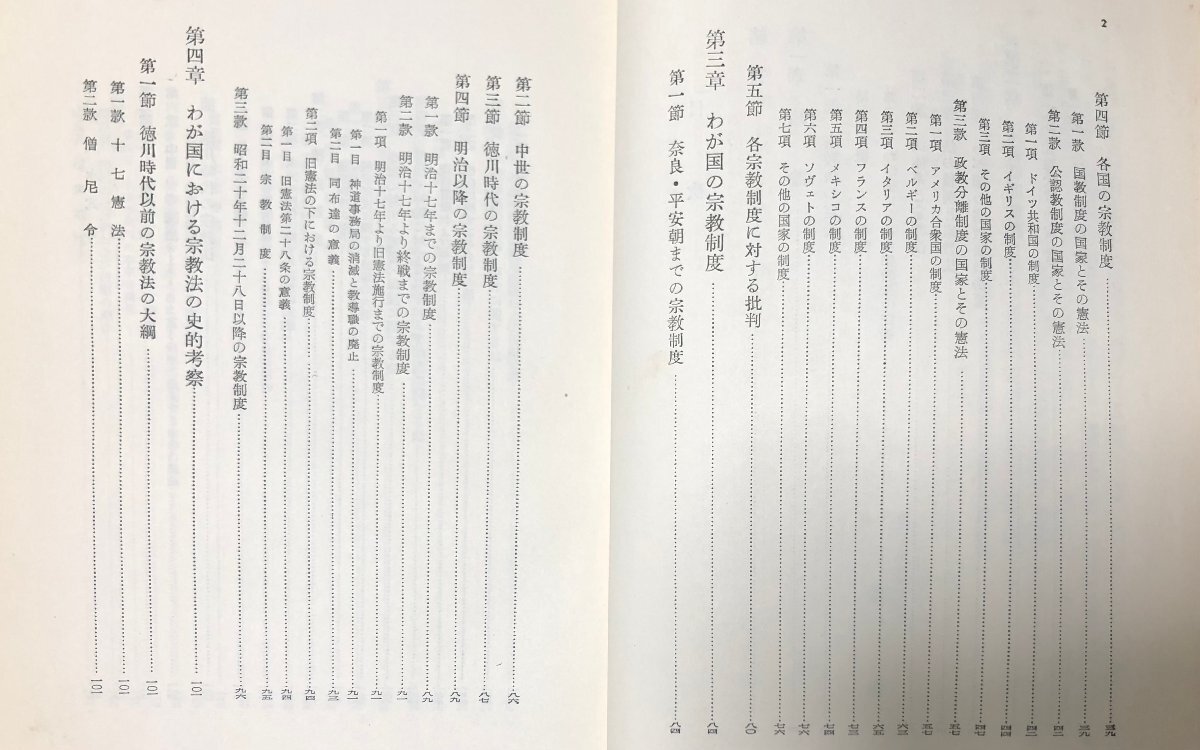 2
第四節 各国の宗教制度……三九
第一款 国教制度の国家とその憲法……三九
第二款 公認教制度の国家とその憲法……四二
第一項 ドイツ共和国の制度……四二
第二項 イギリスの制度……四四
第三項 その他の国家の制度……四七
第三款 政教分離制度の国家とその憲法……五七
第一項 アメリカ合衆国の制度……五七
第二項 ベルギーの制度……六三
第三項 イタリアの制度……六五
第四項 フランスの制度……七三
第五項 メキシコの制度……七四
第六項 ソヴェトの制度……七六
第七項 その他の国家の制度……七六
第五節 各宗教制度に対する批判……八〇
第三章 わが国の宗教制度……八四
第一節 奈良・平安朝までの宗教制度……八四
第二節 中世の宗教制度……八六
第三節 徳川時代の宗教制度……八七
第四節 明治以降の宗教制度……八九
第一款 明治十七年までの宗教制度……八九
第二款 明治十七年より終戦までの宗教制度……九一
第一項 明治十七年より旧憲法施行までの宗教制度……九一
第一目 神道事務局の消滅と教導職の廃止……九一
第二目 同布達の意義……九三
第二項 旧憲法の下における宗教制度……九四
第一目 旧憲法第二十八条の意義……九四
第二目 宗教制度……九五
第三款 昭和二十年十二月二十八日以降の宗教制度……九六
第四章 わが国における宗教法の史的考察……一〇一
第一節 徳川時代以前の宗教法の大綱……一〇一
第一款 十七憲法……一〇一
第二款 僧尼令……一〇一